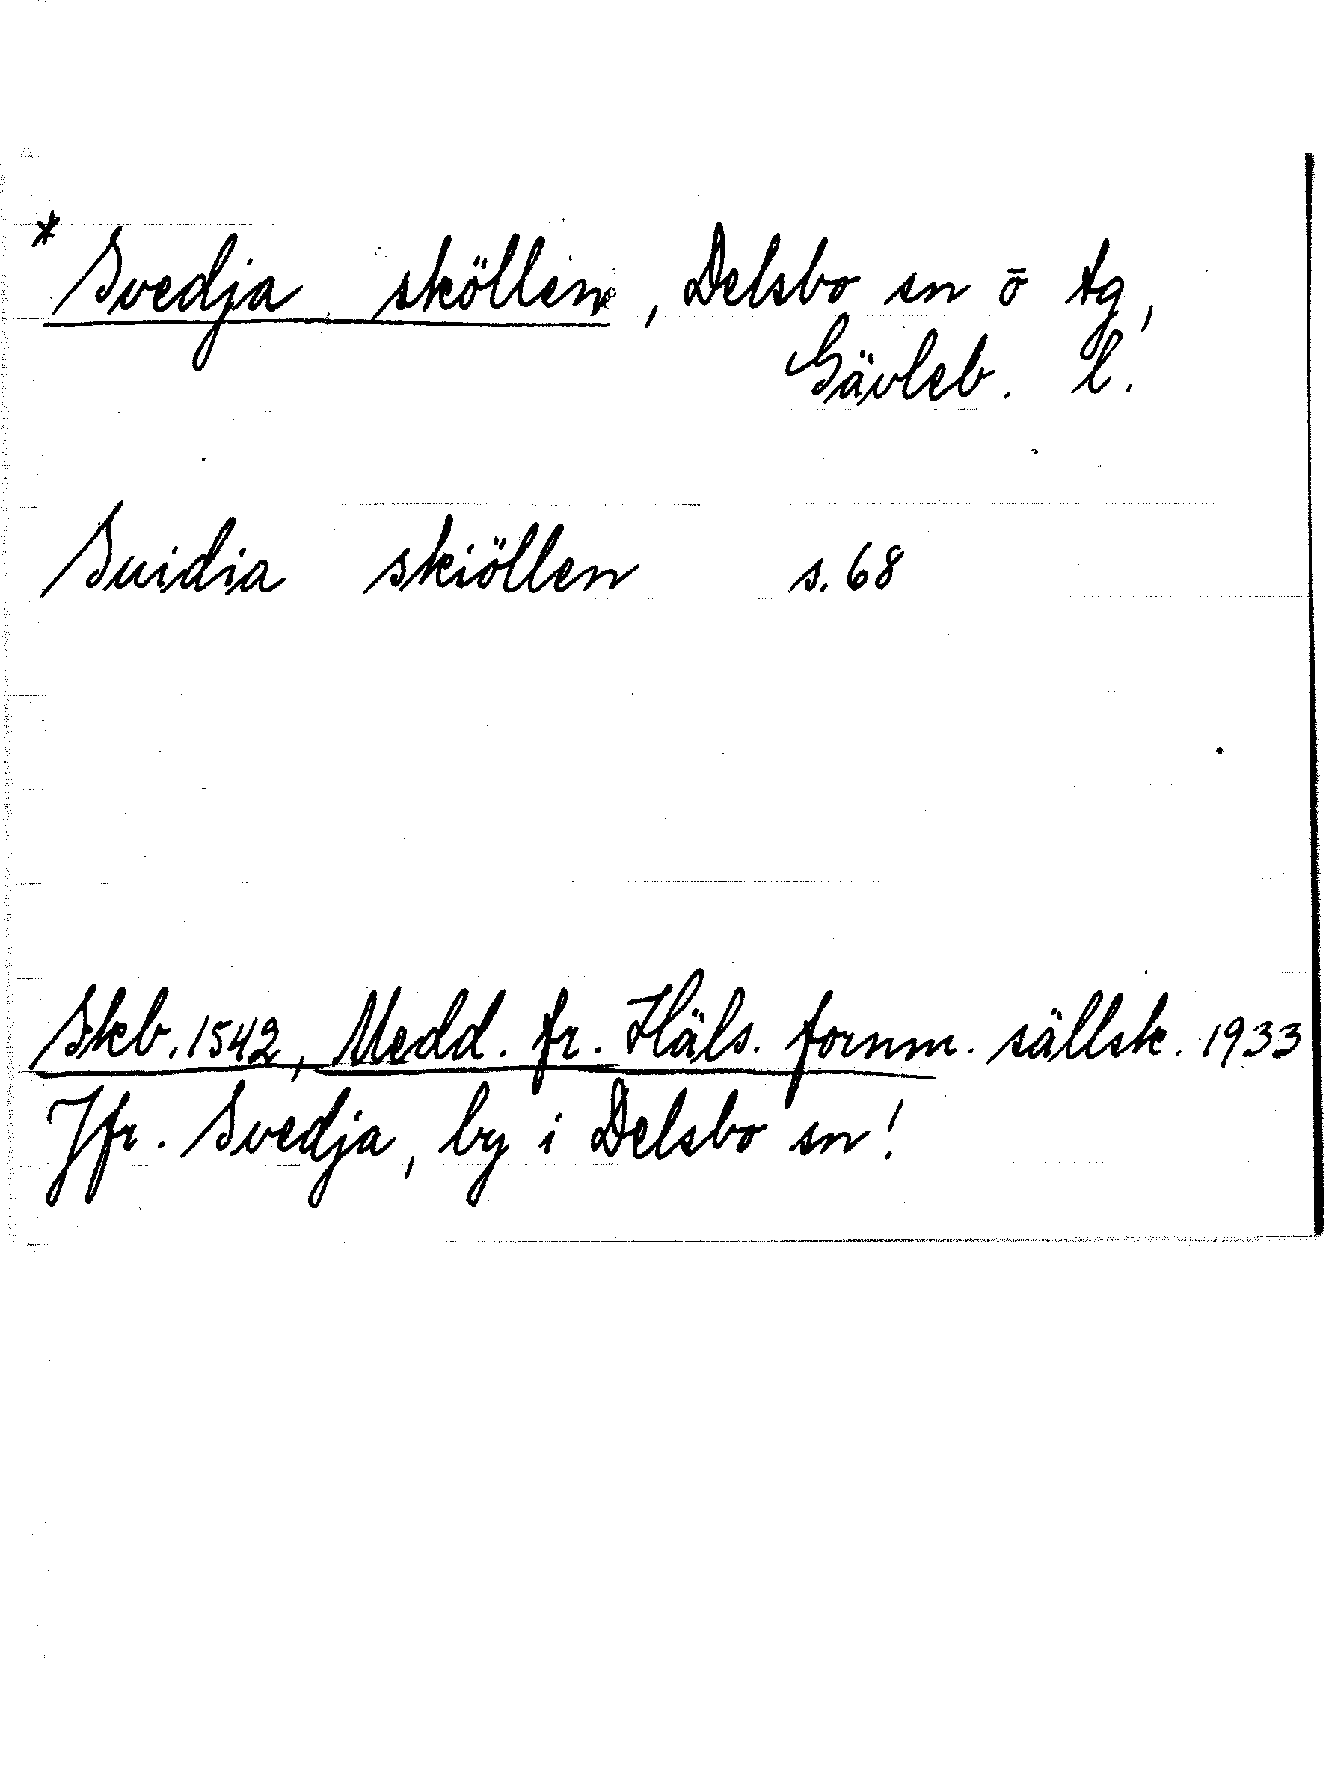 * Svedja sköllen, Delsbo sn ö tg,
Gävleb. l.
Suidia skiöllen s. 68
Skeb. 1542, Medd. fr. Häls. fornm. sällsk. 1933
Jfr. Svedja, by i Delsbo sn!